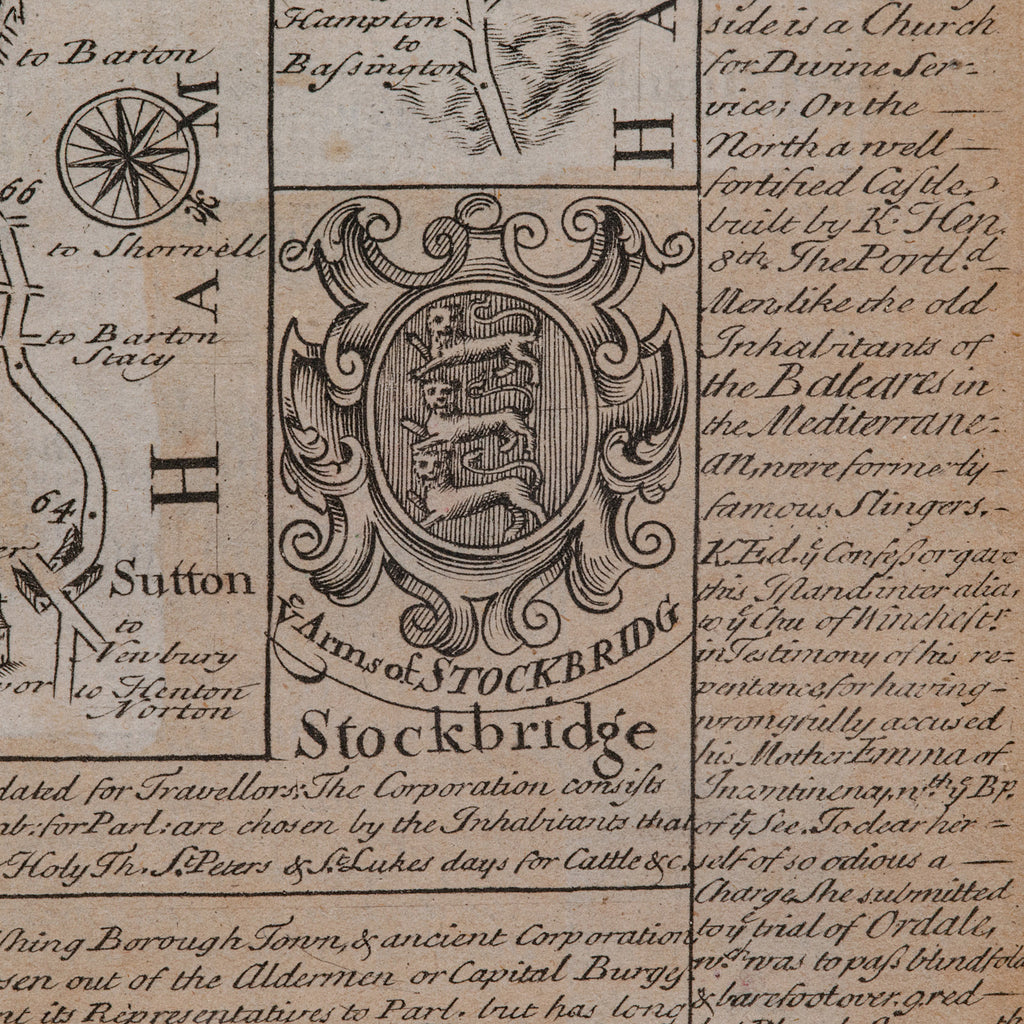 to Barton
66
to Shorwell
to Barton
Stacy
64
Sutton
to
Newbury
to Henton
Norton
M
A
H
Hampton
to
Baſsington
A
H
yͤ Arms of STOCKBRIDG
Stockbridge
dated for Travellors: The Corporation consiſts
mb: for Parl: are chosen by the Inhabitants that
Holy Th. Sᵗ. Peters & Sᵗ. Lukes days for Cattle &c.
ſhing Borough Town, & ancient Corporation
sen out of the Aldermen or Capital Burgeſ
nt its Representatives to Parl. but has long
side is a Church
for Divine Ser-
vice; On the
North a well
fortified Caſtle,
built by K. Hen.
8ᵗʰ. The Portlᵈ.
Men, like the old
Inhabitants of
the Baleares in
the Mediterrane:
an, were formerly
famous Slingers.
K. Ed. yͤ Confeſsor gave
this Island inter alia,
to yͤ Chu of Wincheſtʳ
in Testimony of his re=
pentance, for having
wrongfully accused
his Mother Emma of
Incontinency, wᵗʰ yͤ Bp.
of yͤ See. To clear her=
self of so odious a
Charge, She submitted
to yͤ trial of Ordale,
wᶜʰ was to paſs blindfold
& barefoot over 9 red